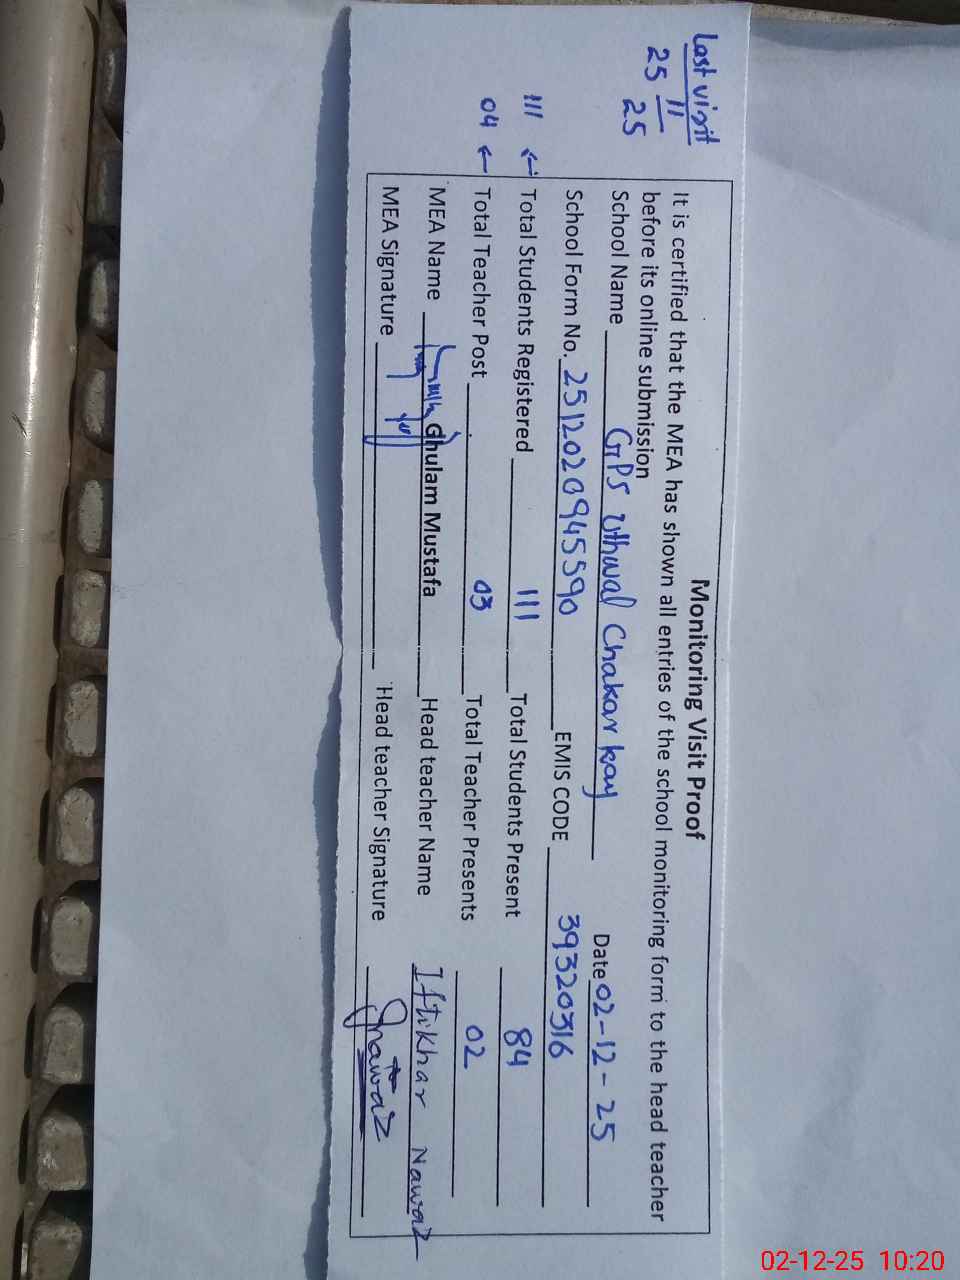 Last visit
25 11 25
Monitoring Visit Proof
It is certified that the MEA has shown all entries of the school monitoring form to the head teacher
before its online submission
School Name GPS Uthwal Chakar kay Date 02-12-25
School Form No. 2512020945590 EMIS CODE 39320316
111 ← Total Students Registered 111 Total Students Present 84
04 ← Total Teacher Post 03 Total Teacher Presents 02
MEA Name Ghulam Mustafa Head teacher Name Iftikhar Nawaz
MEA Signature Head teacher Signature Inawaz
02-12-25 10:20